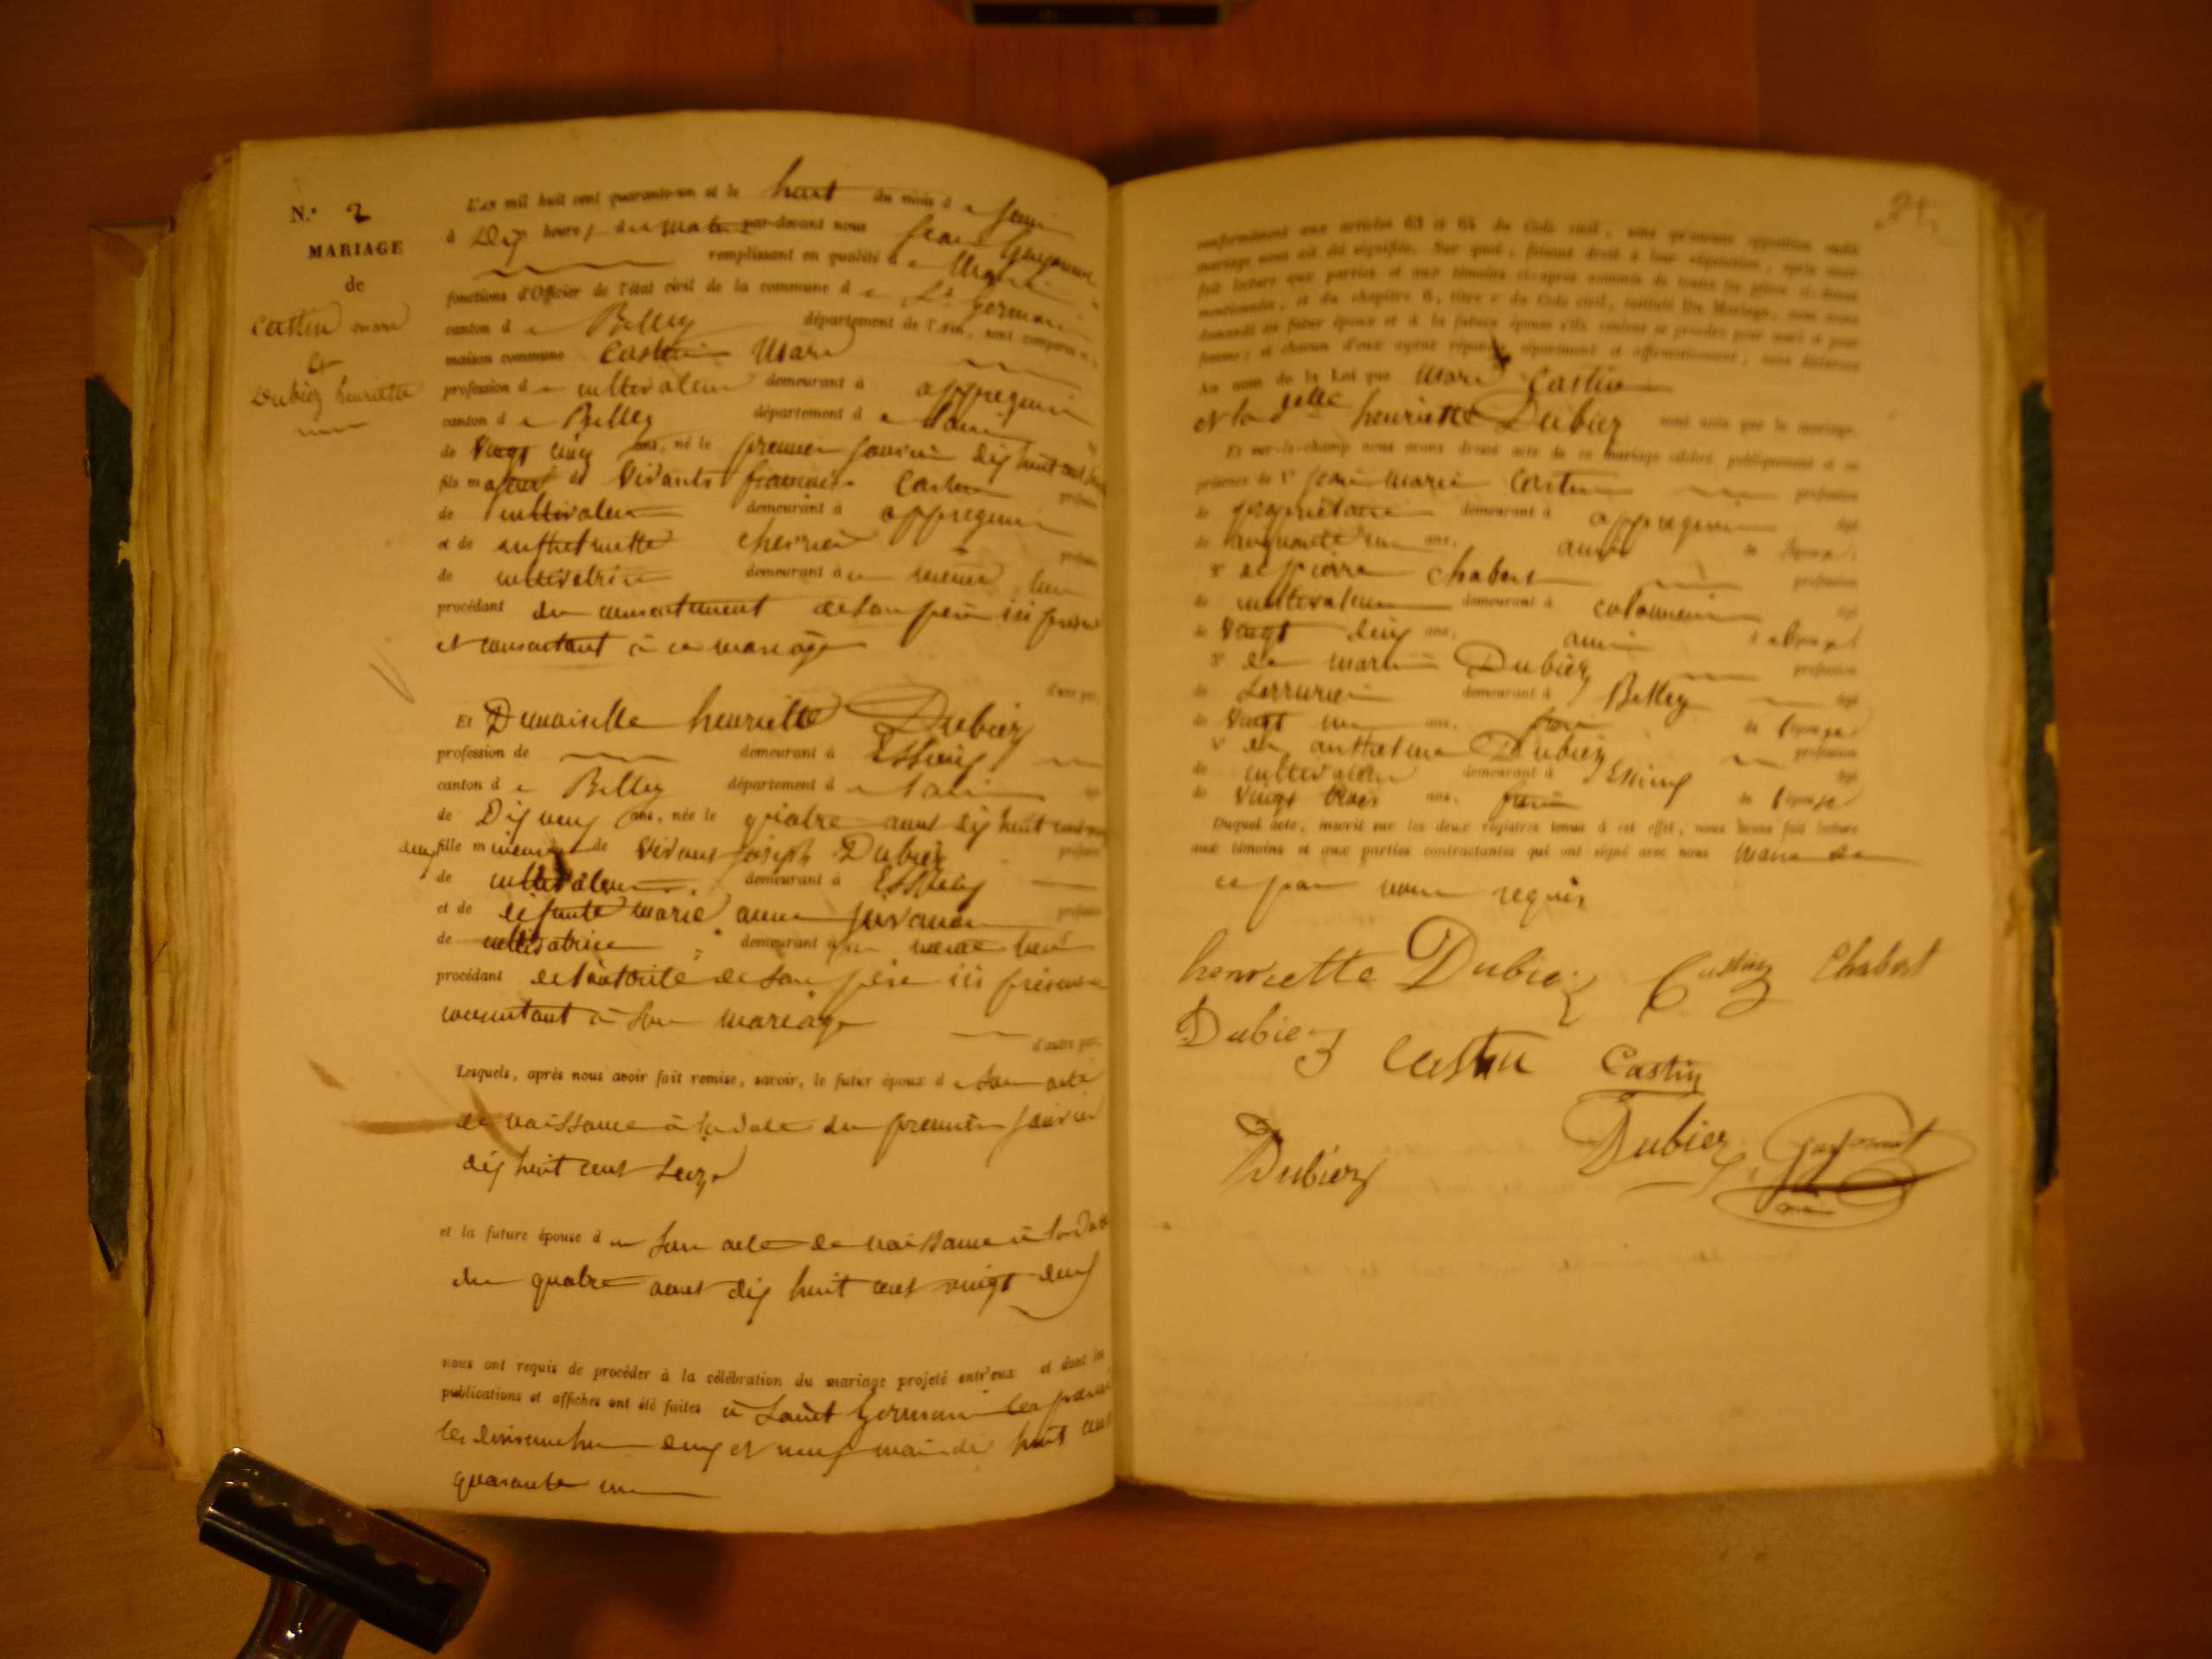 N.° 2
MARIAGE
de
Castin marc
et
Dubiez henriette
L'AN mil huit cent quarante-un et le huit du mois de juin
à Dix heures du matin par-devant nous jean
remplissant en qualité de Maire
fonctions d'Officier de l'état civil de la commune de St germain
canton de Belley département de l'Ain, sont comparus en
maison commune Castin Marc
profession de cultivateur demeurant à appregnin
canton de Belley département de l'ain
de Vingt cinq ans, né le premier janvier dix huit cent seize
fils majeur de Vivants francois Castin profession
de cultivateur demeurant à appregnin
et de anthelmette profession
de cultivatrice demeurant au même lieu
procédant du consentement de son père ici présent
et consentant à ce mariage
d'une part,
Et Demoiselle henriette Dubiez
profession de demeurant à Essieux
canton de Belley département de l'ain
de Dix neuf ans, née le quatre aout dix huit cent vingt
deux fille mineure de Vivant joseph Dubiez profession
de cultivateur demeurant à Essieux
et de défunte marie anne profession
de cultivatrice demeurant au même lieu
procédant de l'autorité de son père ici présent
consentant à son mariage
d'autre part,
Lesquels, après nous avoir fait remise, savoir, le futur époux de son acte
de naissance à la date du premier janvier
dix huit cent seize
et la future épouse de son acte de naissance à la date
du quatre aout dix huit cent vingt deux
nous ont requis de procéder à la célébration du mariage projeté entr'eux et dont les
publications et affiches ont été faites à Saint germain les paroisses
les dimanches deux et neuf mai dix huit cent
quarante un
conformément aux articles 63 et 64 du Code civil, sans qu'aucune opposition audit
mariage nous ait été signifiée. Sur quoi, faisant droit à leur réquisition, après avoir
fait lecture aux parties et aux témoins ci-après nommés de toutes les pièces ci-dessus
mentionnées, et du chapitre 6, titre v du Code civil, intitulé Du Mariage, nous avons
demandé au futur époux et à la future épouse s'ils veulent se prendre pour mari et pour
femme; et chacun d'eux ayant répondu séparément et affirmativement, nous déclarons
Au nom de la Loi que Marc Castin
et la delle henriette Dubiez sont unis par le mariage.
Et sur-le-champ nous avons dressé acte de ce mariage célébré publiquement et en
présence de 1° jean marie Castin profession
de propriétaire demeurant à appregnin âgé
de cinquante un ans, ami de l'époux
2° de pierre Chabert profession
de cultivateur demeurant à colomieu âgé
de Vingt deux ans, ami de l'époux
3° de marin Dubiez profession
de Serrurier demeurant à Belley âgé
de Vingt un ans, frère de l'épouse
4° de anthelme Dubiez profession
de cultivateur demeurant à Essieux âgé
de Vingt trois ans, frère de l'épouse
Duquel acte, inscrit sur les deux registres tenus à cet effet, nous avons fait lecture
aux témoins et aux parties contractantes qui ont signé avec nous Maire de
ce par nous requis
henriette Dubiez Castin Chabert
Dubiez Castin Castin
Dubiez Dubiez